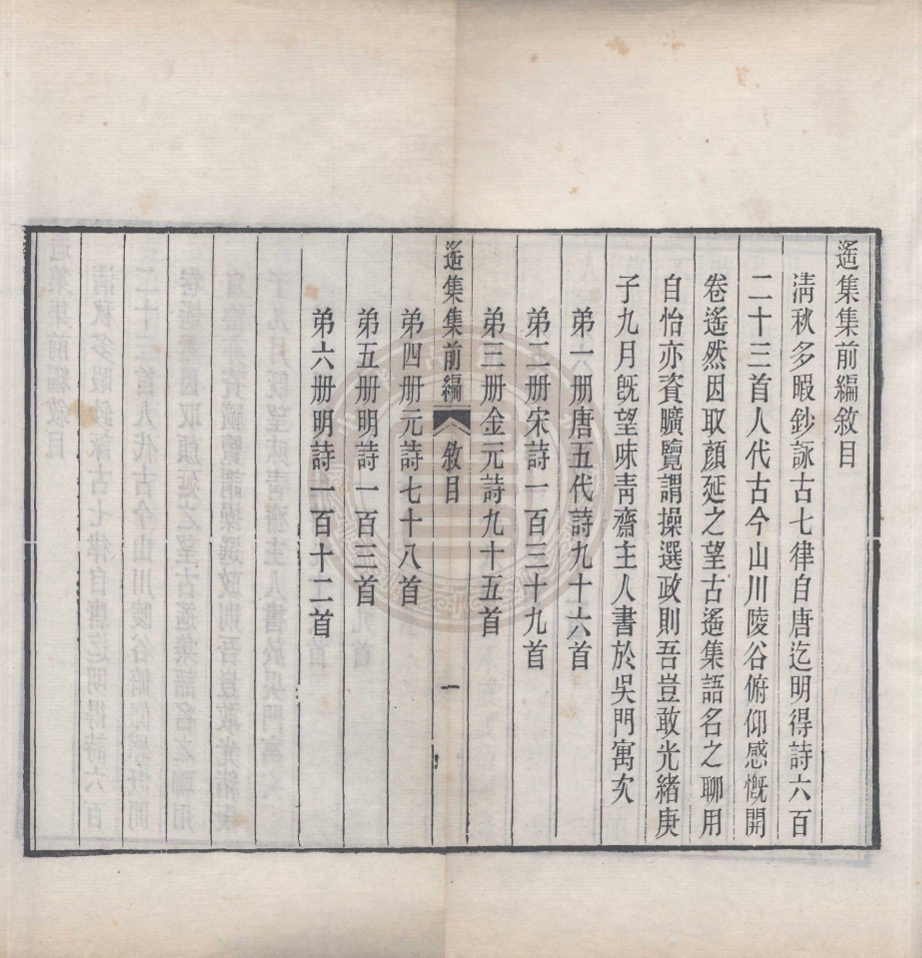 遙集集前編敘目
淸秋多暇鈔詠古七律自唐迄明得詩六百
二十三首人代古今山川陵谷俯仰感慨開
卷遙然因取顏延之望古遙集語名之聊用
自怡亦資曠覽謂操選政則吾豈敢光緒庚
子九月旣望味靑齋主人書於吳門寓次
弟一册唐五代詩九十六首
弟二册宋詩一百三十九首
弟三册金元詩九十五首
遙集集前編 敘目 一
弟四册元詩七十八首
弟五册明詩一百三首
弟六册明詩一百十二首